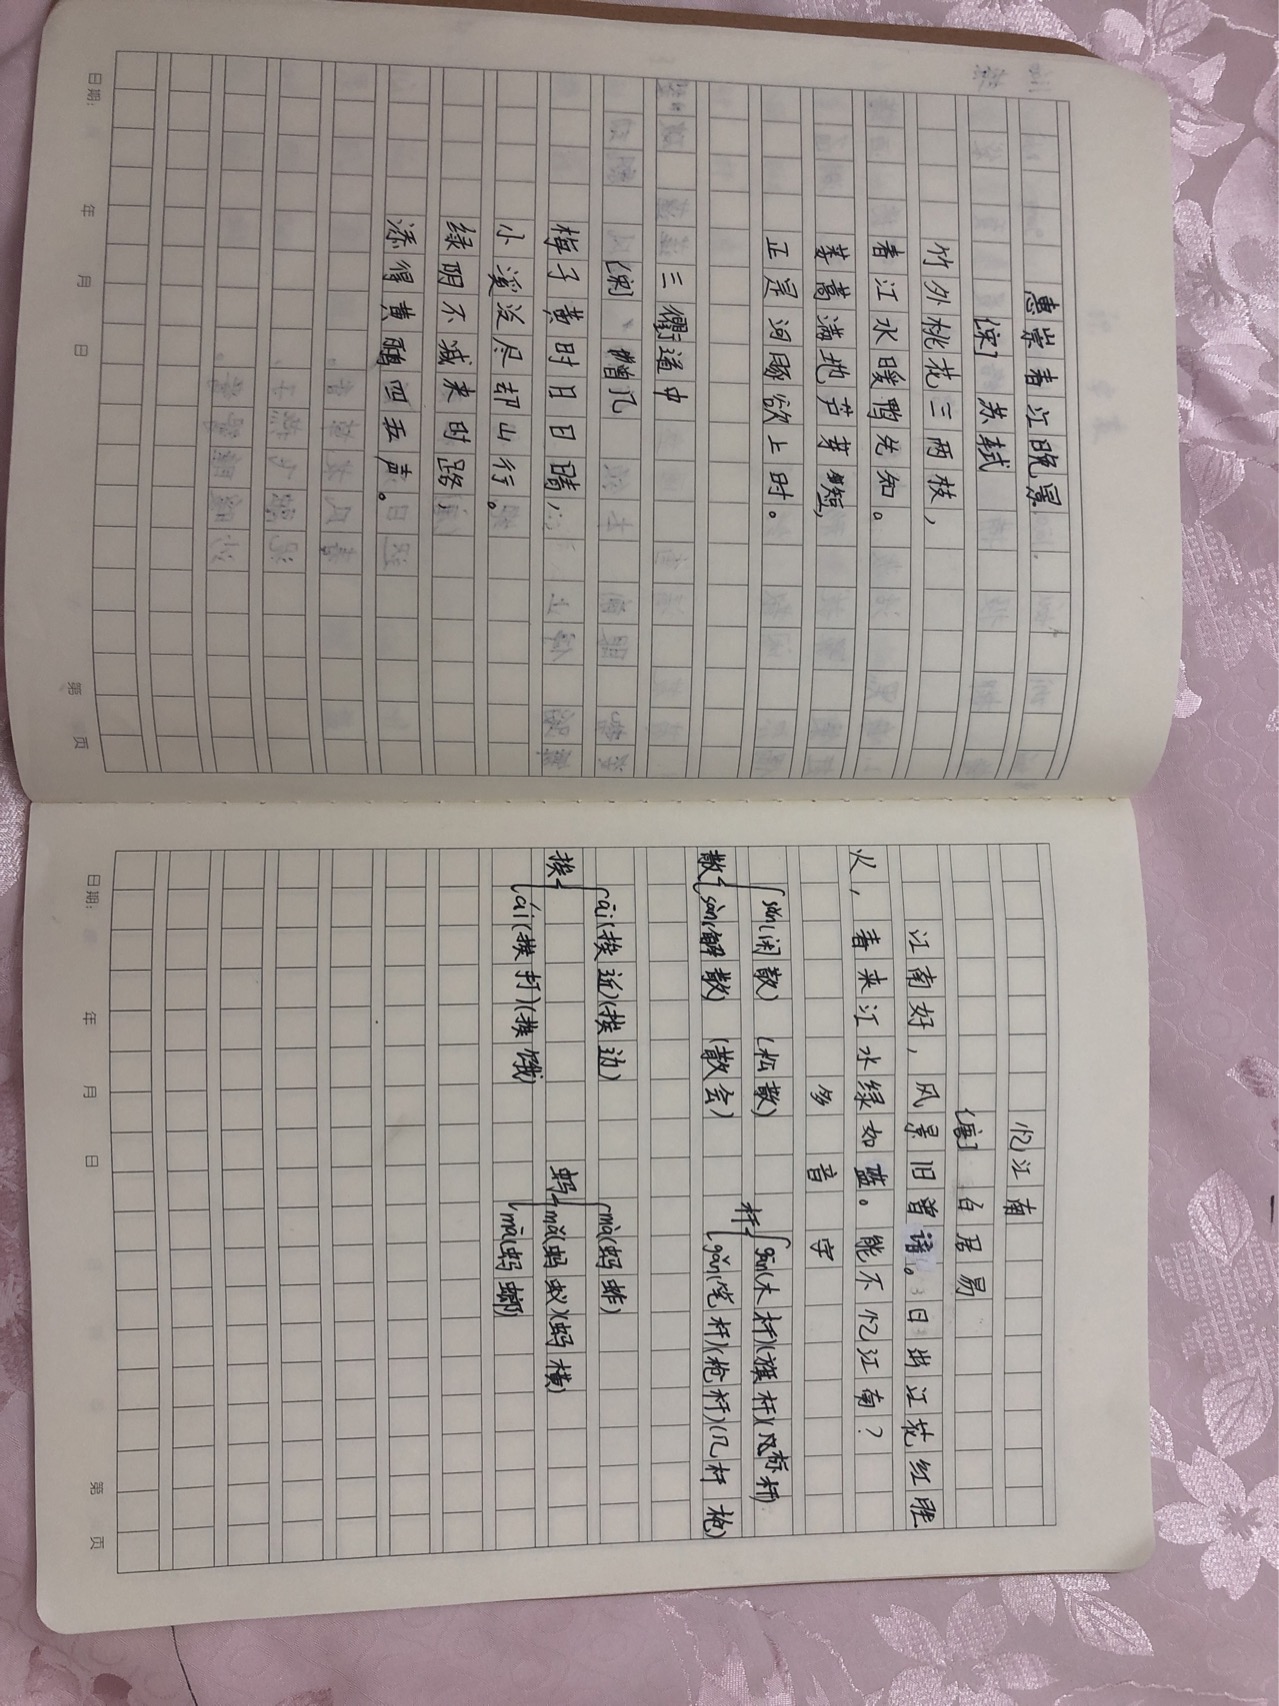 惠崇春江晚景
[宋] 苏轼
竹外桃花三两枝，
春江水暖鸭先知。
蒌蒿满地芦芽短，
正是河豚欲上时。
三衢道中
[宋] 曾几
梅子黄时日日晴，
小溪泛尽却山行。
绿阴不减来时路，
添得黄鹂四五声。
日期： 年 月 日 第 页
忆江南
[唐] 白居易
江南好，风景旧曾谙。日出江花红胜
火，春来江水绿如蓝。能不忆江南？
多音字
散{sǎn(闲散) (松散)
sàn(解散) (散会)
杆{gān(木杆)(旗杆)(风标杆)
gǎn(笔杆)(枪杆)(几杆枪)
挨{āi(挨近)(挨边)
ái(挨打)(挨饿)
蚂{mà(蚂蚱)
mǎ(蚂蚁)(蚂横)
mā(蚂螂)
日期： 年 月 日 第 页